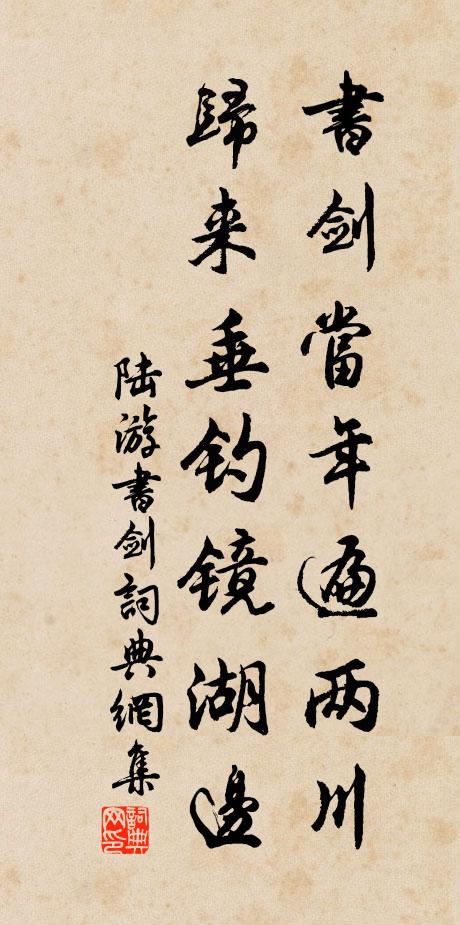 書劍當年遍两川
歸来垂钓镜湖邊
陆游書劍詞典網集
詞典網印